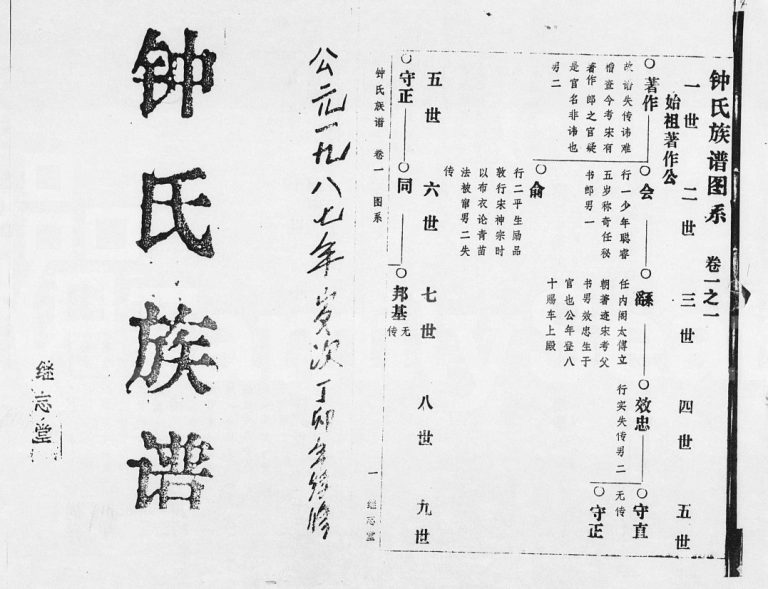 钟氏族谱图系 卷一之一
一世 二世 三世 四世 五世
始祖著作公
著作
故谱失传讳难
稽查今考宋有
著作郎之官疑
是官名非讳也
男二
会
行一少年聪睿
五岁称奇任秘
书郎男一
俞
行二平生励品
敦行宋神宗时
以布衣论青苗
法被窜男二失
传
繇
任内阁太傅立
朝著迹宋考父
书男效忠生于
官也公年登八
十赐车上殿
效忠
行实失传男二
守直
无传
守正
五世 六世 七世 八世 九世
守正
同
邦基
无传
钟氏族谱 卷一 图系 一 继志堂
公元一九八七年岁次丁卯
钟氏族谱
继志堂